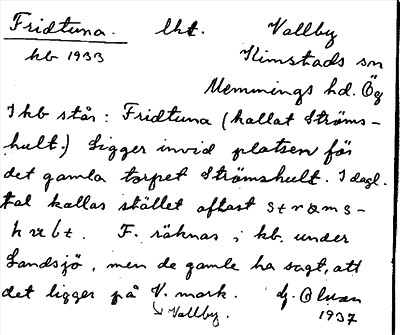 Fridtuna. lht. Vallby
kb 1933 Kimstads sn
Memmings hd. Ög
I kb står: Fridtuna (kallat Ströms-
hult.) Ligger invid platsen för
det gamla torpet Strömshult. I dagl.
tal kallas stället oftast
F. räknas i kb. under
Landsjö, men de gamle ha sagt, att
det ligger på V. mark.
Vallby. 1937